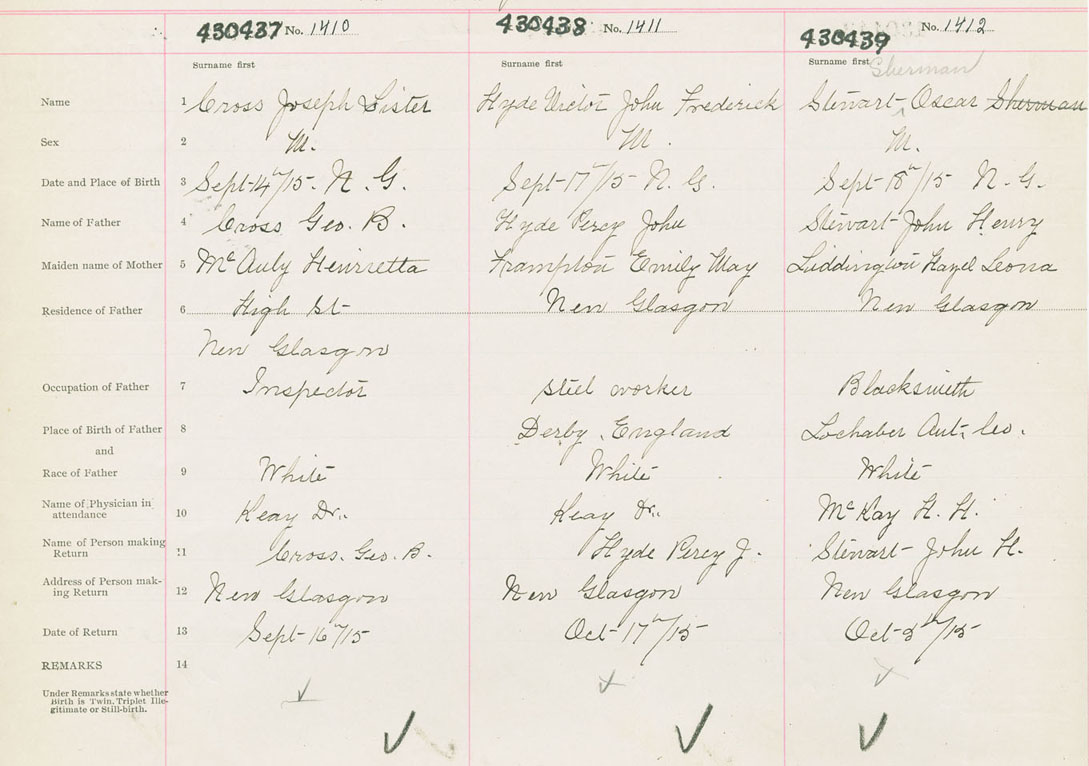 430437 No. 1410 430438 No. 1411 430439 No. 1412
Surname first Surname first Surname first Sherman
Name 1 Cross Joseph Lister Hyde Victor John Frederick Stewart Oscar Sherman
Sex 2 M. M. M.
Date and Place of Birth 3 Sept 14th/15. N. G. Sept 17th/15 N. G. Sept 18th/15 N. G.
Name of Father 4 Cross Geo. B. Hyde Percy John Stewart John Henry
Maiden name of Mother 5 McAuly Henrietta Frampton Emily May Luddington Hazel Leona
Residence of Father 6 High St New Glasgow New Glasgow
New Glasgow
Occupation of Father 7 Inspector Steel worker Blacksmith
Place of Birth of Father 8 Derby, England Lochaber Ant. Co.
and
Race of Father 9 White White White
Name of Physician in
attendance 10 Keay Dr. Keay Dr. McKay H. H.
Name of Person making
Return 11 Cross. Geo. B. Hyde Percy J. Stewart John H.
Address of Person mak-
ing Return 12 New Glasgow New Glasgow New Glasgow
Date of Return 13 Sept 16th/15 Oct 17th/15 Oct 5th/15
REMARKS 14
Under Remarks state whether
Birth is Twin, Triplet Ille-
gitimate or Still-birth.